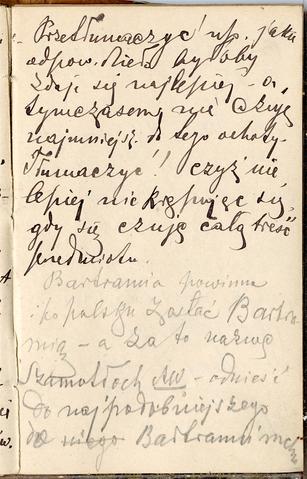 Przetłumaczyć! np. jaka
odpow. dieta byłoby
zdaje się najlepiej – a
tymczasem nic czuję
najmniejsz. do tego ochoty.
Tłumaczyć! czyż nie
lepiej nie krępując się,
gdy się czuję całą treść
przedmiotu.
Bartramia powinna
i po polsku zostać Bartra-
mią – a za to nazwę
Szamotłoch AW – odnieść
do najpodobniejszego
do niego Bartramii mchu